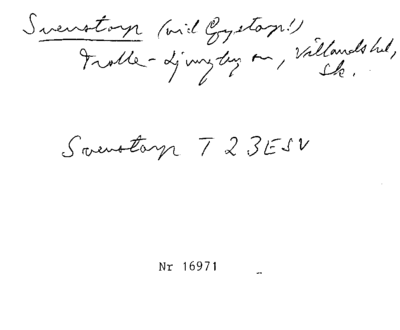 Svenstorp (vid Gystorp!)
Trolle-Ljungby sn, Villands hd,
Sk.
Svenstorp T 23 ESV
Nr 16971